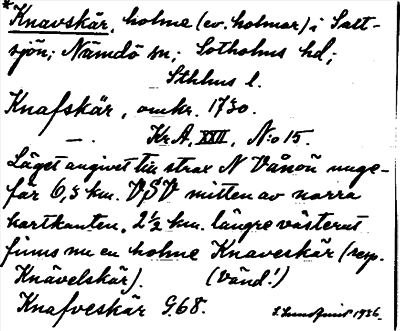 *Knavskär, holme (ev. holmar) i Salt-
sjön; Nämdö sn; Sotholms hd;
Sthlms l.
Knafskär, omkr. 1730.
—. Kr.A, XXII, N:o 15.
Läget angivet till strax N Vånön unge-
fär 6,5 km. VSV mitten av norra
kartkanten. 2½ km. längre västerut
finns nu en holme Knaveskär (resp.
Knävelskär). (Vänd!)
Knafveskär G.68.
1936.